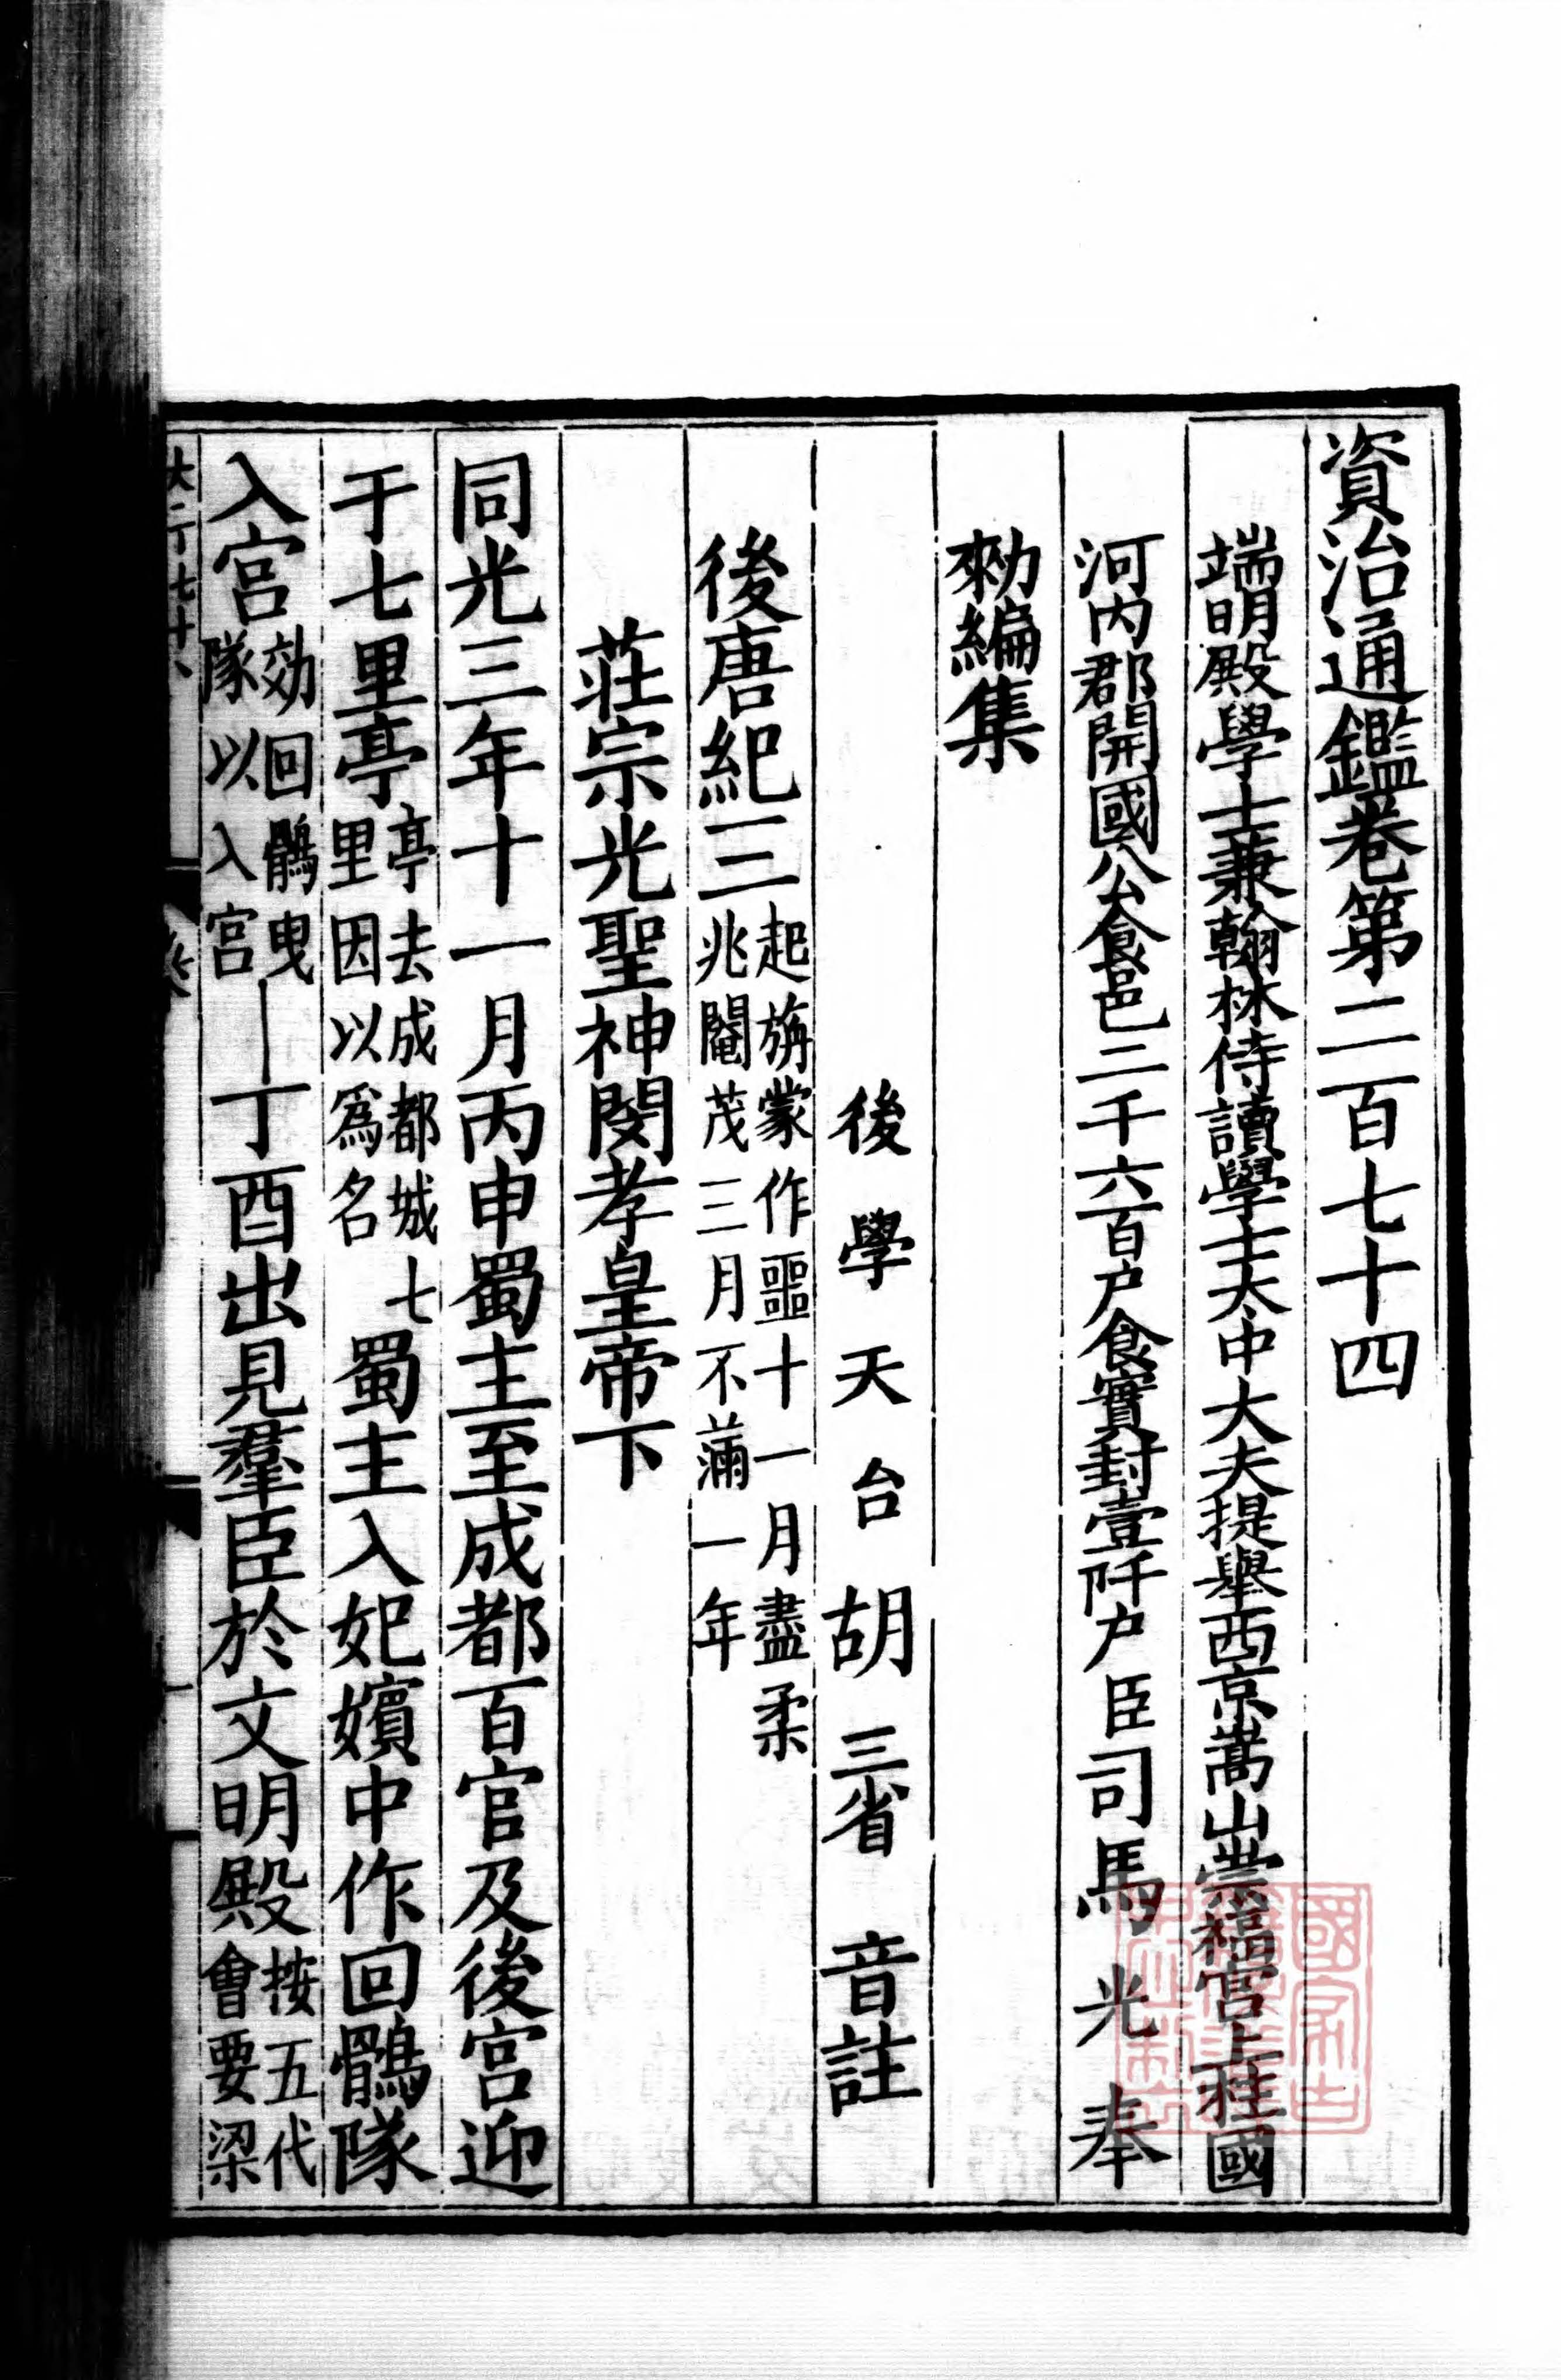 資治通鑑卷第二百七十四
端明殿學士兼翰林侍讀學士太中大夫提舉西京嵩山崇福宮上柱國
河內郡開國公食邑二千六百戶食實封壹阡戶臣司馬光奉
勑編集
後學天台胡三省音註
後唐紀三起旃蒙作噩十一月盡柔兆閹茂三月不滿一年
莊宗光聖神閔孝皇帝下
同光三年十一月丙申蜀主至成都百官及後宮迎
于七里亭亭去成都城七里因以為名蜀主入妃嬪中作回鶻隊
入宮効回鶻曳隊以入宮丁酉出見羣臣於文明殿按五代會要梁